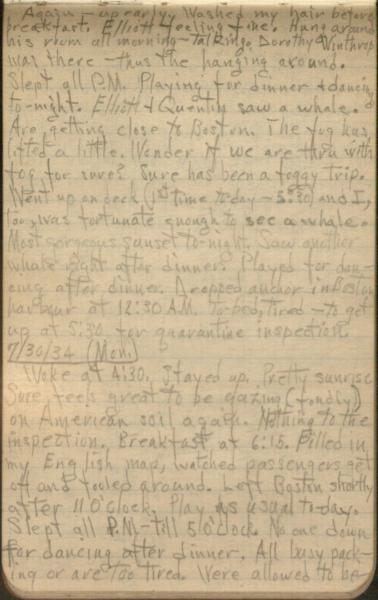 Again - up early. Washed my hair before
breakfast. Elliott feeling fine. Hung around
his room all morning - talking. Dorothy Winthrop
was there - thus the hanging around.
Slept all P.M. Playing for dinner & dancing
to-night. Elliott & Quentin saw a whale.
Are getting close to Boston. The fog has
lifted a little. Wonder if we are thru with
fog for sure? Sure has been a foggy trip.
Went up on deck (1st time to-day - 5:30) and I,
too, was fortunate enough to see a whale.
Most gorgeous sunset to-night. Saw another
whale right after dinner. Played for dan-
cing after dinner. Dropped anchor in Boston
harbour at 12:30 A.M. To bed, tired - to get
up at 5:30 for quarantine inspection.
7/30/34 (Mon.)
Woke at 4:30. Stayed up. Pretty sunrise.
Sure feels great to be gazing (fondly)
on American soil again. Nothing to the
inspection. Breakfast at 6:15. Filled in
my English map, watched passengers get
off and fooled around. Left Boston shortly
after 11 O'clock. Play as usual to-day.
Slept all P.M. - till 5 O'clock. No one down
for dancing after dinner. All busy pack-
ing or are too tired. Were allowed to be